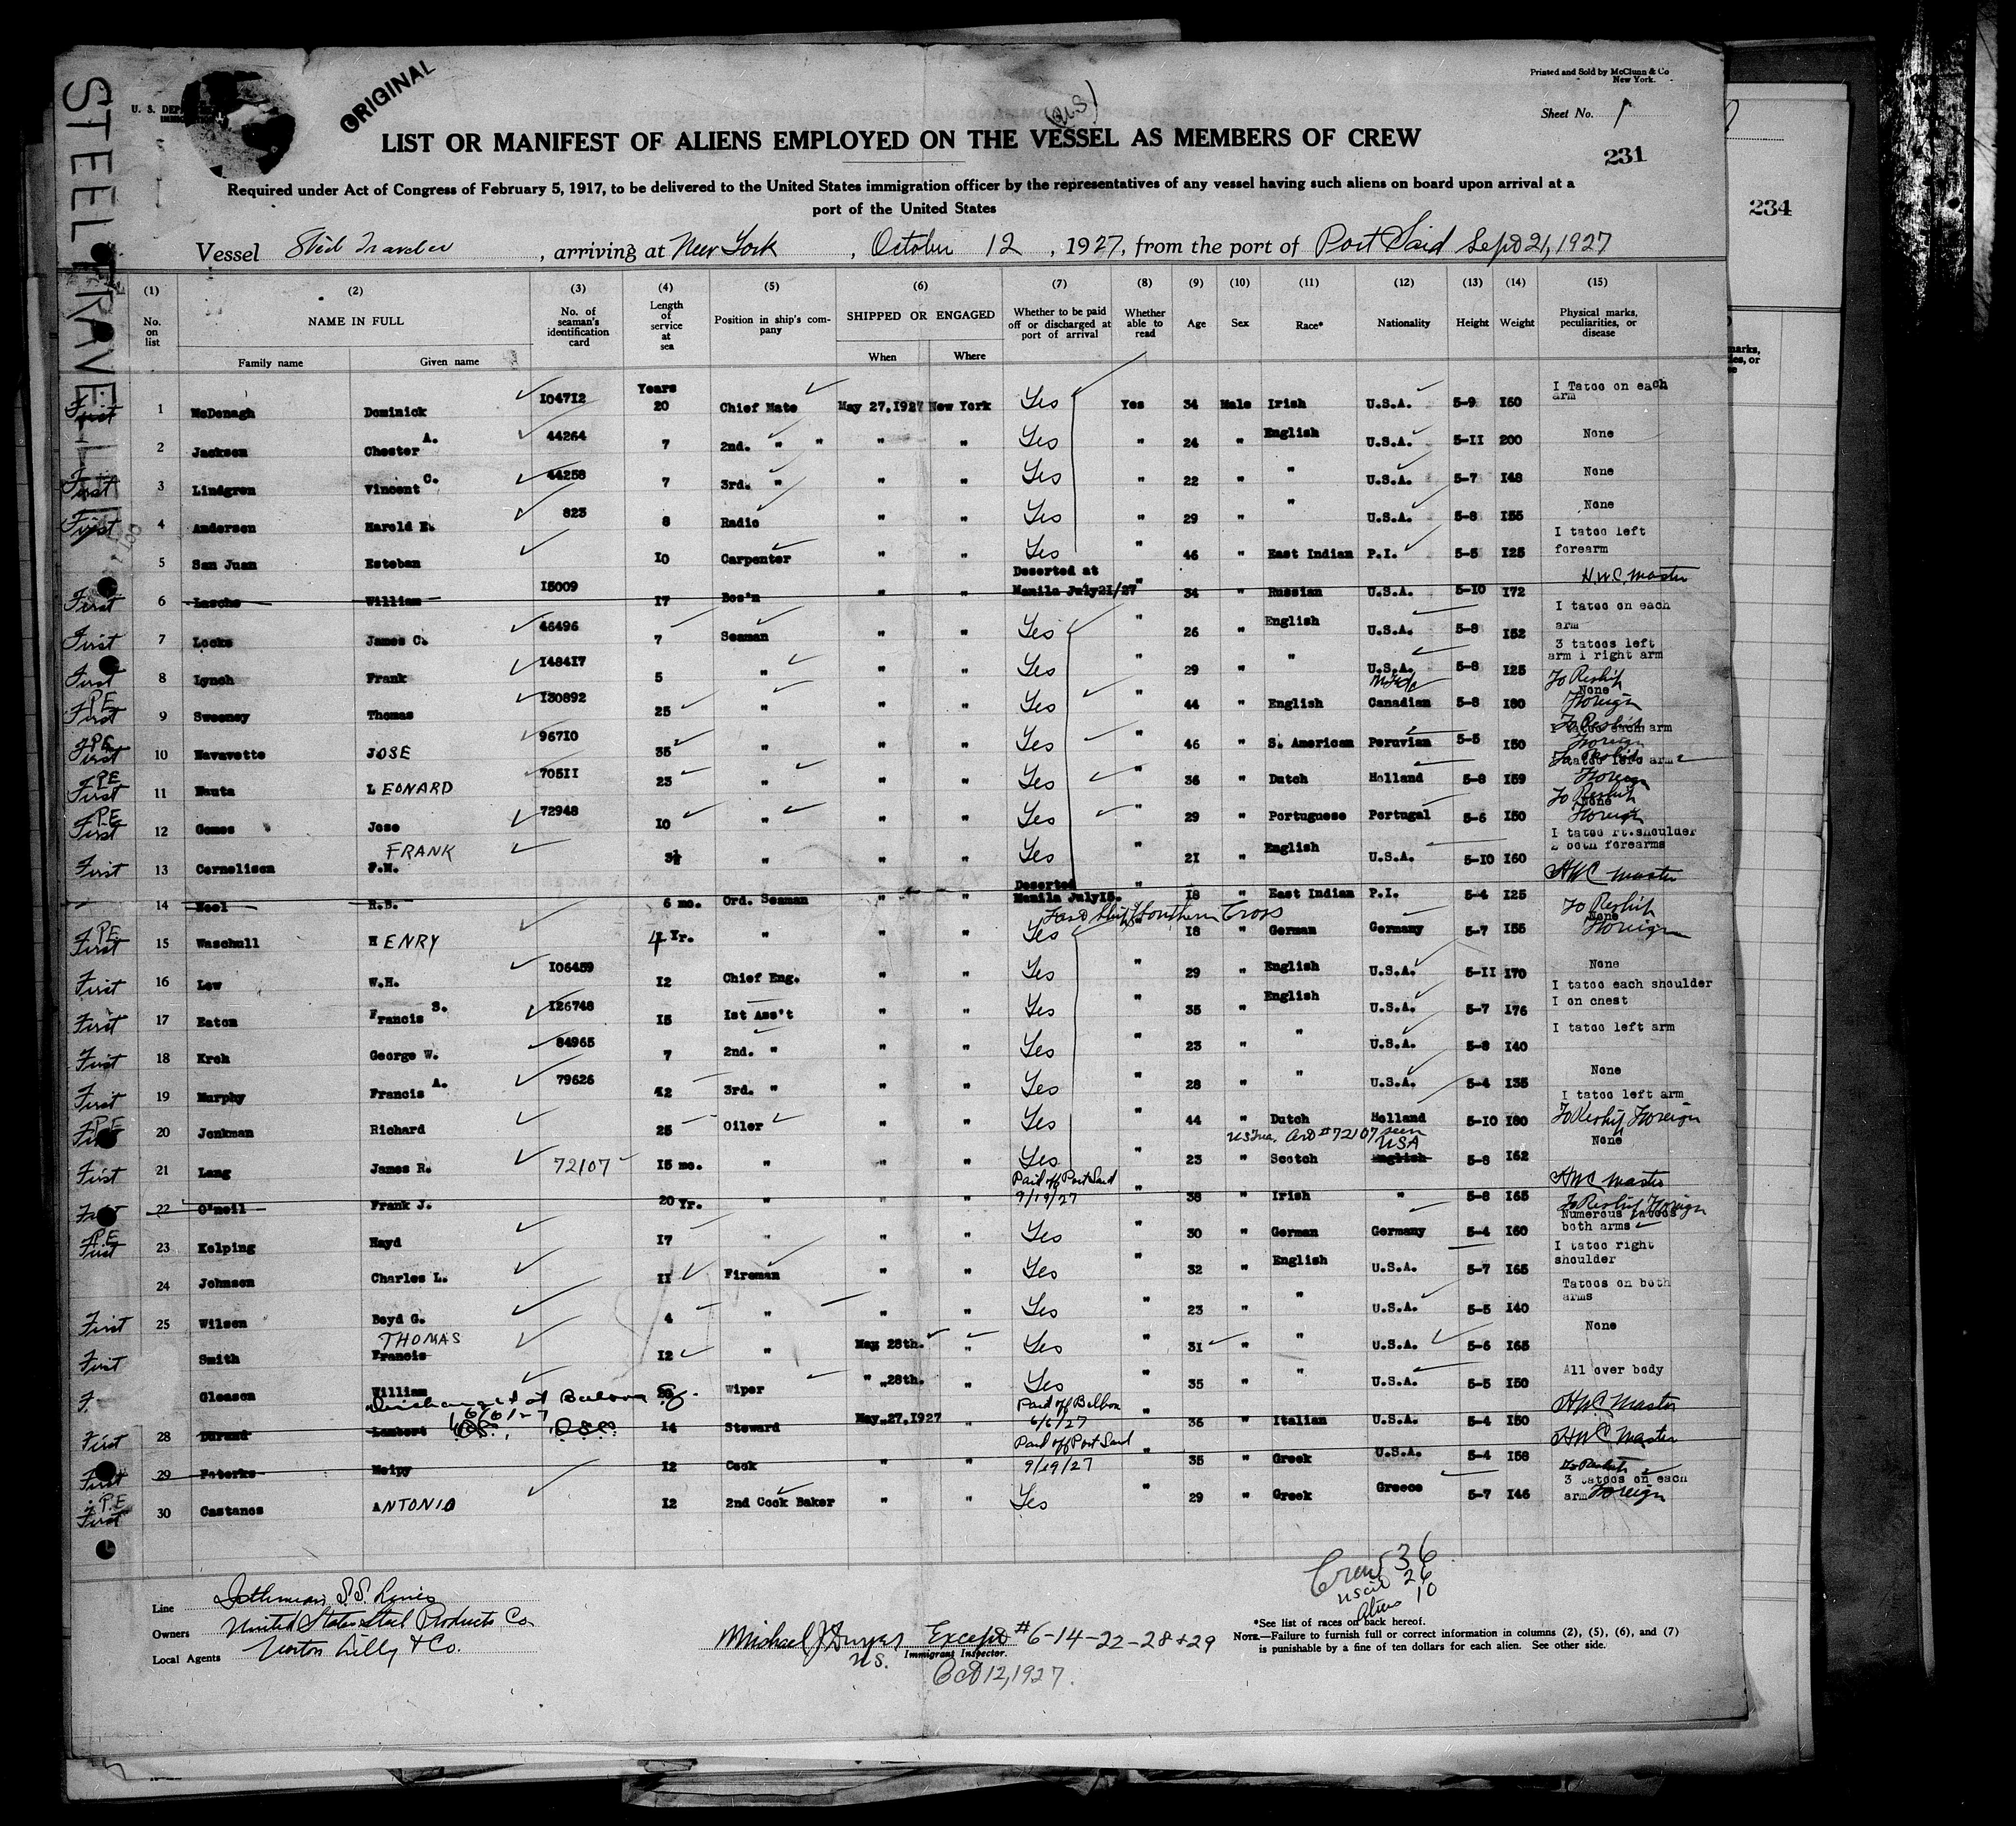 STEEL TRAVELLER
U. S. DEP
ORIGINAL
Printed and Sold by McClunn & Co
New York.
Sheet No. 1
LIST OR MANIFEST OF ALIENS EMPLOYED ON THE VESSEL AS MEMBERS OF CREW
231
234
Required under Act of Congress of February 5, 1917, to be delivered to the United States immigration officer by the representatives of any vessel having such aliens on board upon arrival at a
port of the United States
Vessel Steel Traveler, arriving at New York, October 12, 1927, from the port of Port Said Sept 21, 1927
(1) (2) (3) (4) (5) (6) (7) (8) (9) (10) (11) (12) (13) (14) (15)
No. on list NAME IN FULL Family name Given name No. of seaman's identification card Length of service at sea Position in ship's company SHIPPED OR ENGAGED When Where Whether to be paid off or discharged at port of arrival Whether able to read Age Sex Race* Nationality Height Weight Physical marks, peculiarities, or disease
First 1 McDonagh Dominick 104712 Years 20 Chief Mate May 27,1927 New York Yes Yes 34 Male Irish U.S.A. 5-9 160 I Tatoo on each arm
2 Jackson Chester A. 44264 7 2nd. " " " " Yes " 24 " English U.S.A. 5-II 200 None
First 3 Lindgren Vincent C. 44258 7 3rd. " " " Yes " 22 " " U.S.A. 5-7 148 None
First 4 Anderson Harold E. 823 8 Radio " " Yes " 29 " " U.S.A. 5-8 155 None
5 San Juan Esteban 10 Carpenter " " Yes " 46 " East Indian P.I. 5-5 125 I tatoo left forearm
First 6 Lascho William 15009 17 Bos'n " " Deserted at Manila July21/27 " 34 " Russian U.S.A. 5-10 172 H.W.C. Master
First 7 Locks James C. 46496 7 Seaman " " Yes " 26 " English U.S.A. 5-8 152 I tatoo on each arm
First 8 Lynch Frank 148417 5 " " " Yes " 29 " " U.S.A. 5-8 125 3 tatoos left arm 1 right arm
P.E. First 9 Sweeney Thomas 130892 25 " " " Yes " 44 " English Canadian 5-8 180 To Reship None Foreign
P.E. First 10 Navavette JOSE 96710 35 " " " Yes " 46 " S. American Peruvian 5-5 150 To Reship I tatoo each arm Foreign
P.E. First 11 Nauta LEONARD 70511 23 " " " Yes " 36 " Dutch Holland 5-8 159 To Reship I tatoo left arm Foreign
P.E. First 12 Gomes Jose 72948 10 " " " Yes " 29 " Portuguese Portugal 5-6 150 To Reship None Foreign
First 13 Cornelison FRANK F.M. 3½ " " " Yes " 21 " English U.S.A. 5-10 160 I tatoo rt.shoulder 2 both forearms
14 Noel R.B. 6 mo. Ord. Seaman " " Deserted Manila July15. " 18 " East Indian P.I. 5-4 125 HWC Master
P.E. First 15 Waschull HENRY 4 Yr. " " " Yes Southern Cross " 18 " German Germany 5-7 155 To Reship None Foreign
First 16 Low W.H. 106459 12 Chief Eng. " " Yes " 29 " English U.S.A. 5-II 170 None
First 17 Eaton Francis S. 126748 15 Ist Ass't " " Yes " 35 " English U.S.A. 5-7 176 I tatoo each shoulder I on chest
First 18 Kroh George W. 84965 7 2nd. " " " Yes " 23 " " U.S.A. 5-8 140 I tatoo left arm
First 19 Murphy Francis A. 79626 12 3rd. " " " Yes " 28 " " U.S.A. 5-4 135 None
P.E. First 20 Jonkman Richard 25 Oiler " " Yes " 44 " Dutch Holland 5-10 180 I tatoo left arm To Reship Foreign
First 21 Lang James R. 72107 15 mo. " " " Yes " 23 " Scotch #72107 seen USA English 5-8 162 None
First 22 O'neil Frank J. 20 Yr. " " " Paid off Port Said 9/19/27 " 38 " Irish " 5-8 165 HWC Master
P.E. First 23 Kolping Hayd 17 " " " Yes " 30 " German Germany 5-4 160 To Reship Foreign Numerous tatoos both arms
24 Johnson Charles L. II Fireman " " Yes " 32 " English U.S.A. 5-7 165 I tatoo right shoulder
First 25 Wilson Boyd G. 4 " " " Yes " 23 " " U.S.A. 5-5 140 Tatoos on both arms
First Smith THOMAS Francis 12 " May 28th. " Yes " 31 " " U.S.A. 5-6 165 None
F. Gleason William 20 Wiper " 28th. " Yes " 35 " " U.S.A. 5-5 150 All over body
First 28 Durand Lambert Discharged at Balboa 6/6/27 14 Steward May 27,1927 " Paid off Balboa 6/6/27 " 36 " Italian U.S.A. 5-4 150 HWC Master
First 29 Paterks Meipy 12 Cook " " Paid off Port Said 9/19/27 " 35 " Greek U.S.A. 5-4 158 HWC Master
P.E. First 30 Castanos ANTONIO 12 2nd Cook Baker " " Yes " 29 " Greek Greece 5-7 146 To Reship 3 tatoos on each arm Foreign
Crew 36
USCit 26
Aliens 10
Line Isthmian S.S. Lines
Owners United States Steel Products Co.
Local Agents Norton Lilly & Co.
Michael J. Except #6-14-22-28+29
Immigrant Inspector.
Oct 12, 1927.
*See list of races on back hereof.
NOTE.—Failure to furnish full or correct information in columns (2), (5), (6), and (7)
is punishable by a fine of ten dollars for each alien. See other side.